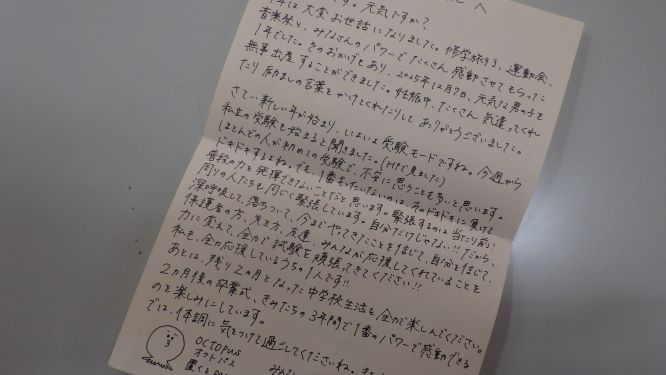 へ
です。元気ですか?
年は大変お世話になりました。修学旅行、運動会、
音楽祭と、みなさんのパワーでたくさん感動させてもらった
1年でした。そのおかげもあり、2025年12月7日、元気な男の子を
無事出産することができました。妊娠中、たくさん気遣ってくれ
たり励ましの言葉をかけてくれたりしてありがとうございました。
さて…新しい年が始まり、いよいよ受験モードですね。今週から
私立の受験も始まると聞きました。(HPで見ました)
ほとんどの人が初めての受験で、不安に思うことも多いと思います。
ドキドキするよね。でも、1番もったいないのは、そのドキドキに負けて
普段の力を発揮できないことだと思います。緊張するのは当たり前!
周りの人たちも同じく緊張しています。自分だけじゃない!!だから、
深呼吸して、落ちついて、今までやってきたことを信じて、自分を信じて、
保護者の方、先生方、友達、みんなが応援してくれていることを
力に変えて、全力で試験を頑張ってきてください!!
私も、全力応援しているうちの1人です!!
あとは、残り2カ月となった中学校生活を全力で楽しんでください。
2カ月後の卒業式、きみたちの3年間で1番のパワーで感動できる
のを楽しみにしています。
では、体調に気をつけて過ごしてくださいね。
OCTOPUS
オクトパス
置くと
みんな